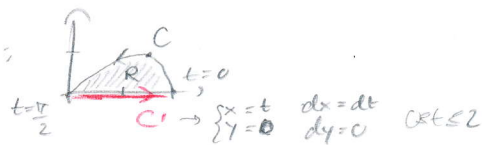 C
R
t=0
t=π/2
C' → { x=t dx=dt
y=0 dy=0 0≤t≤2